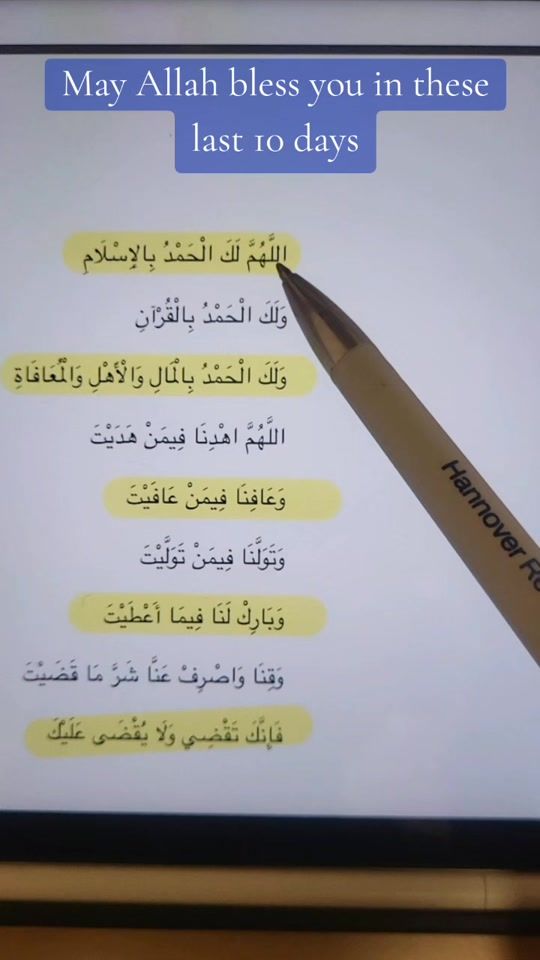 May Allah bless you in these
last 10 days
اللَّهُمَّ لَكَ الْحَمْدُ بِالإِسْلَامِ
وَلَكَ الْحَمْدُ بِالْقُرْآنِ
وَلَكَ الْحَمْدُ بِالْمَالِ وَالْأَهْلِ وَالْمُعَافَاةِ
اللَّهُمَّ اهْدِنَا فِيمَنْ هَدَيْتَ
وَعَافِنَا فِيمَنْ عَافَيْتَ
وَتَوَلَّنَا فِيمَنْ تَوَلَّيْتَ
وَبَارِكْ لَنَا فِيمَا أَعْطَيْتَ
وَقِنَا وَاصْرِفْ عَنَّا شَرَّ مَا قَضَيْتَ
فَإِنَّكَ تَقْضِي وَلَا يُقْضَى عَلَيْكَ
Hannover